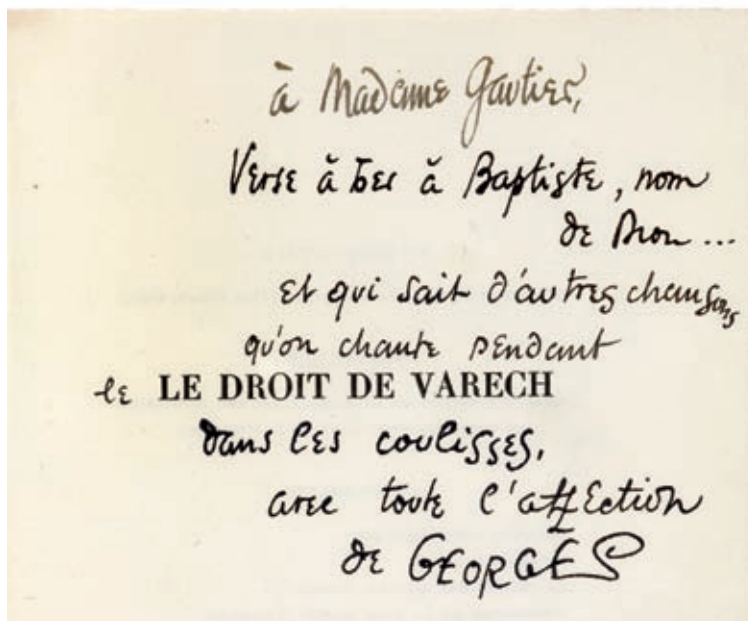 à Madame Gautier,
Verse à boer à Baptiste, nom
de Dion...
et qui sait d'autres chansons
qu'on chante pendant
le LE DROIT DE VARECH
dans les coulisses,
avec toute l'affection
de GEORGES